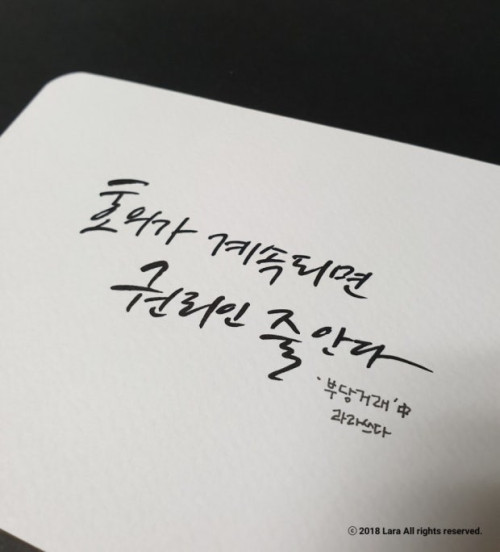 호의가 계속되면
권리인 줄 안다
'부당거래' 中
라라쓰다
ⓒ 2018 Lara All rights reserved.